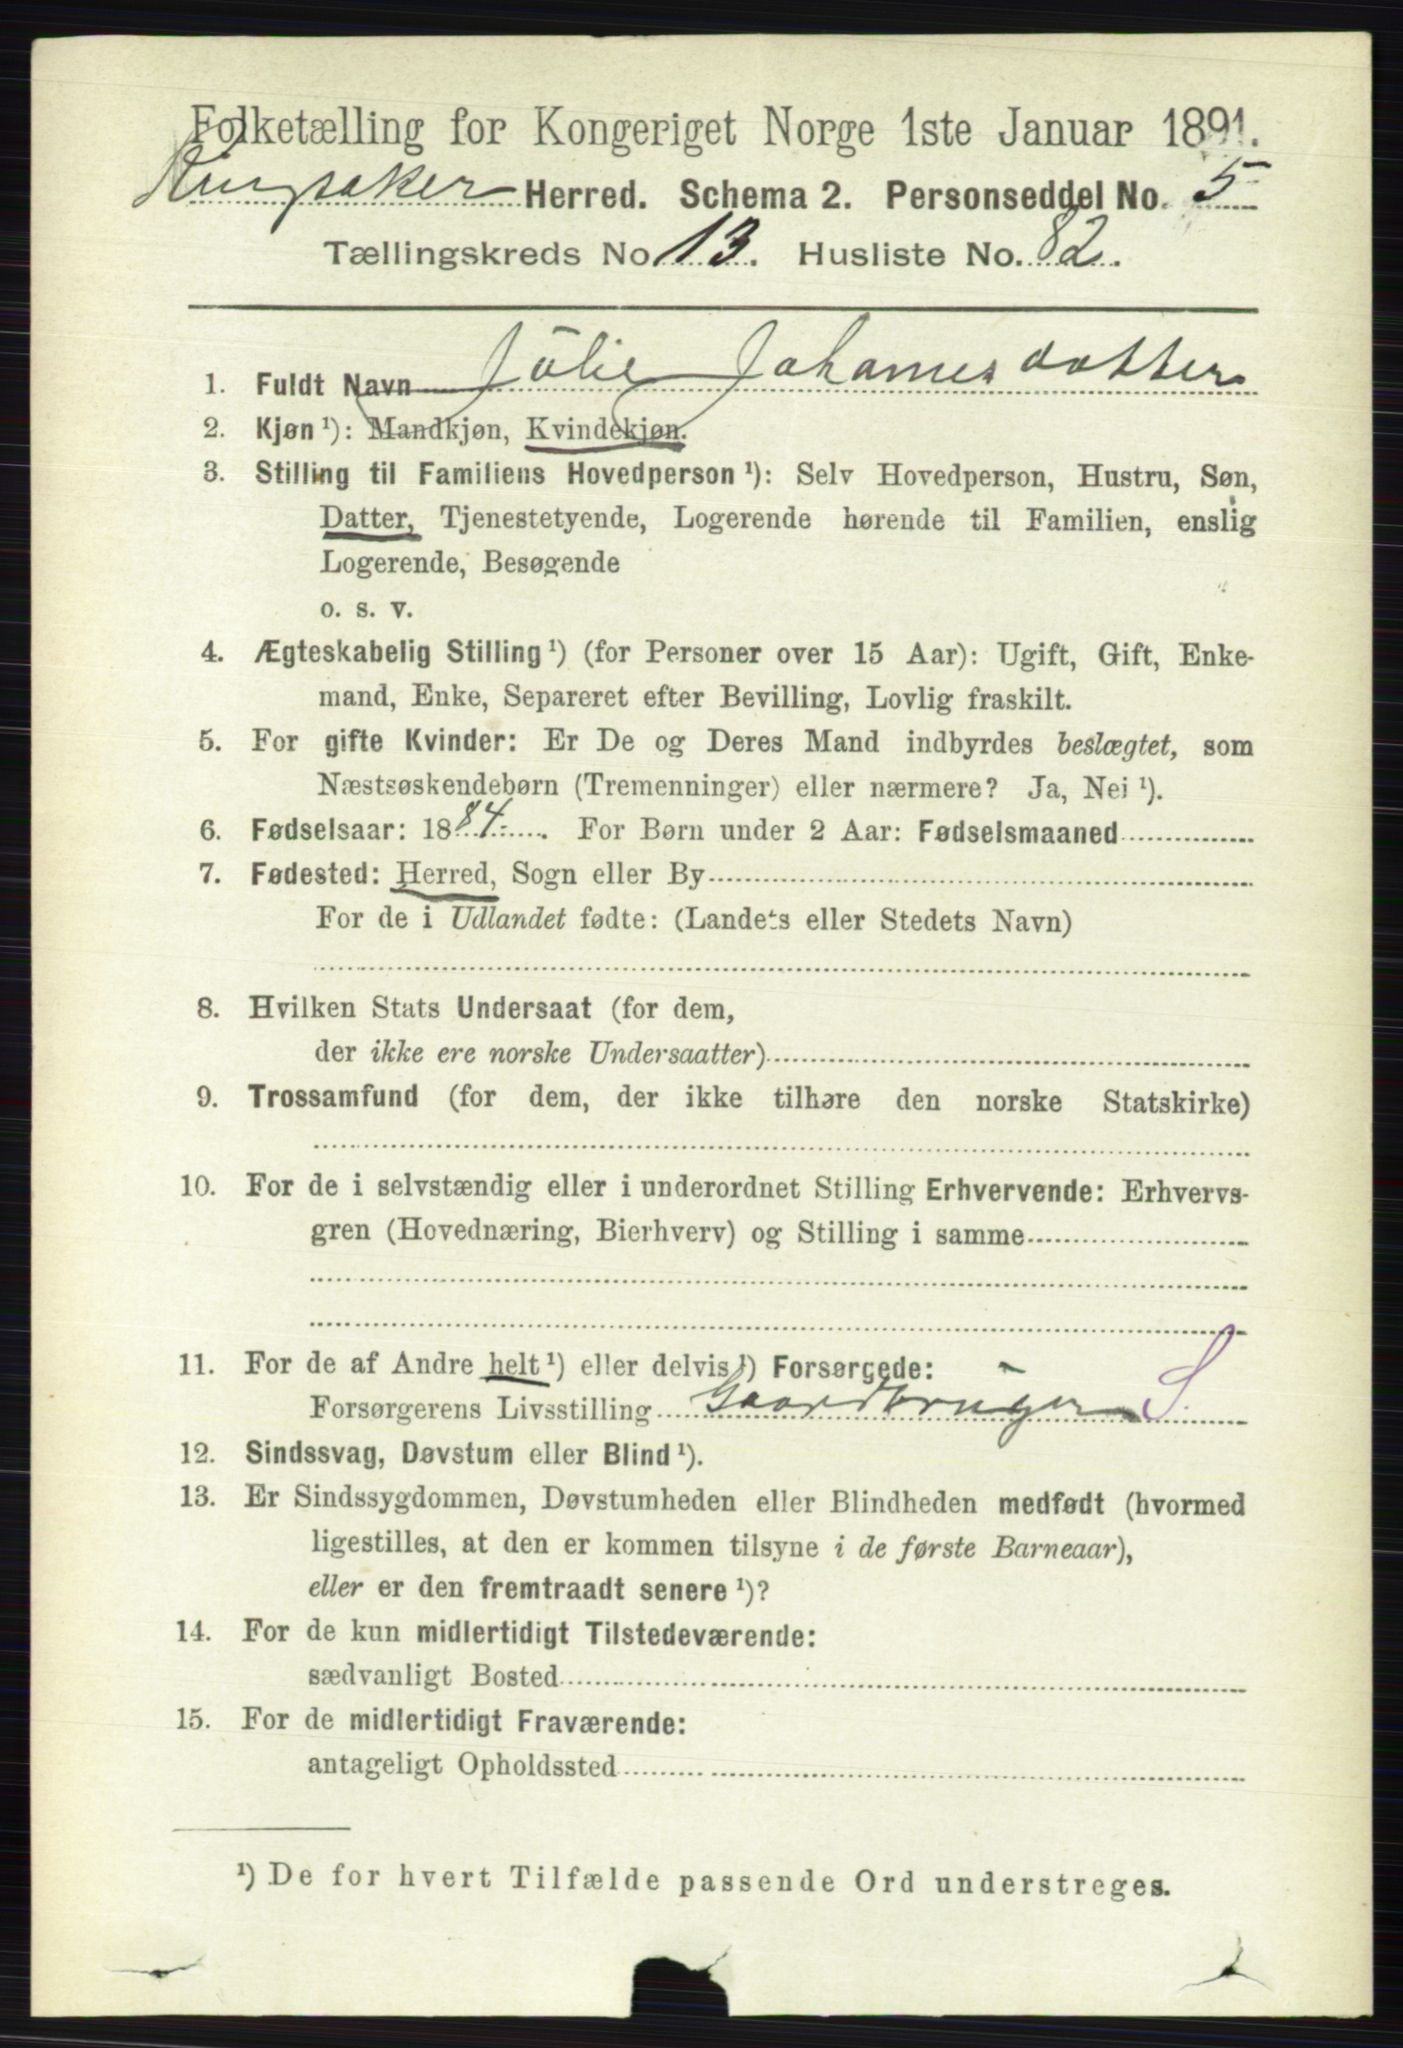 Folketælling for Kongeriget Norge 1ste Januar 1891.
Ringsaker Herred. Schema 2. Personseddel No. 5
Tællingskreds No 13. Husliste No. 82.
1. Fuldt Navn Julie Johannesdatter
2. Kjøn ¹): Mandkjøn, Kvindekjøn.
3. Stilling til Familiens Hovedperson ¹): Selv Hovedperson, Hustru, Søn,
Datter, Tjenestetyende, Logerende hørende til Familien, enslig
Logerende, Besøgende
o. s. v.
4. Ægteskabelig Stilling ¹) (for Personer over 15 Aar): Ugift, Gift, Enke-
mand, Enke, Separeret efter Bevilling, Lovlig fraskilt.
5. For gifte Kvinder: Er De og Deres Mand indbyrdes beslægtet, som
Næstsøskendebørn (Tremenninger) eller nærmere? Ja, Nei ¹).
6. Fødselsaar: 1884. For Børn under 2 Aar: Fødselsmaaned
7. Fødested: Herred, Sogn eller By
For de i Udlandet fødte: (Landets eller Stedets Navn)
8. Hvilken Stats Undersaat (for dem,
der ikke ere norske Undersaatter)
9. Trossamfund (for dem, der ikke tilhøre den norske Statskirke)
10. For de i selvstændig eller i underordnet Stilling Erhvervende: Erhvervs-
gren (Hovednæring, Bierhverv) og Stilling i samme
11. For de af Andre helt ¹) eller delvis ¹) Forsørgede:
Forsørgerens Livsstilling Gaardbruger S.
12. Sindssvag, Døvstum eller Blind ¹).
13. Er Sindssygdommen, Døvstumheden eller Blindheden medfødt (hvormed
ligestilles, at den er kommen tilsyne i de første Barneaar),
eller er den fremtraadt senere ¹)?
14. For de kun midlertidigt Tilstedeværende:
sædvanligt Bosted
15. For de midlertidigt Fraværende:
antageligt Opholdssted
¹) De for hvert Tilfælde passende Ord understreges.